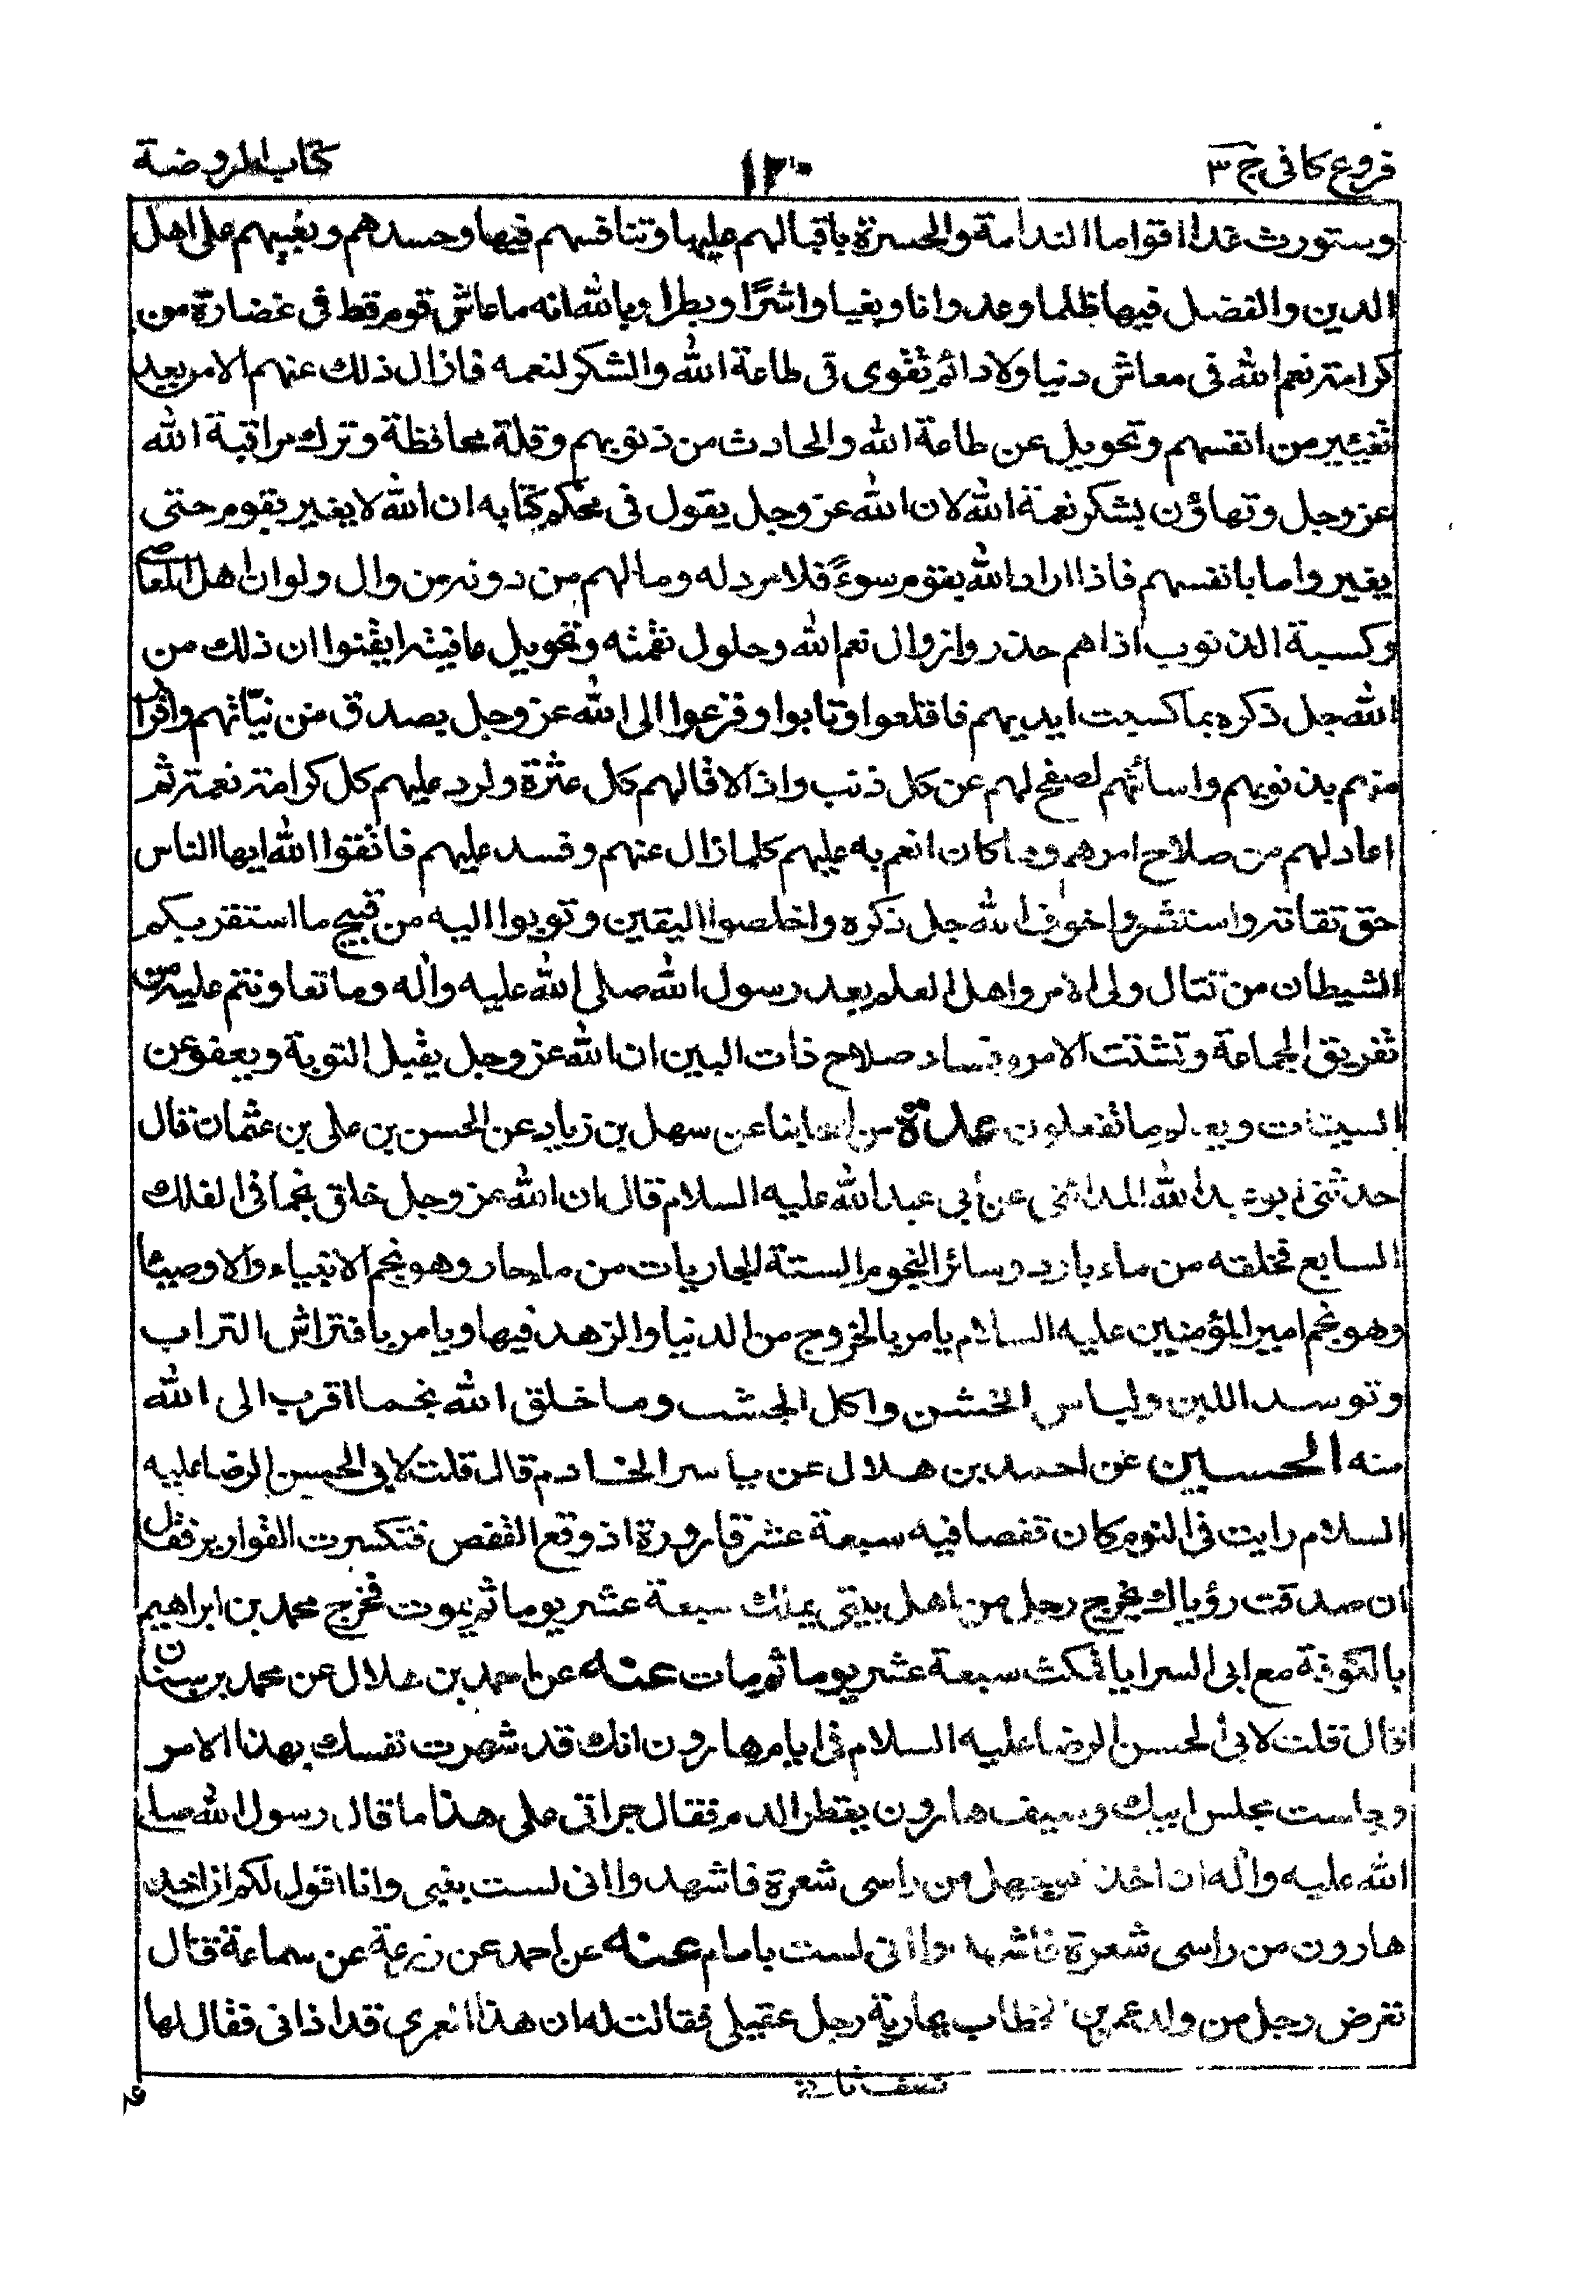 فروع كافى ج ٣
١٢٠
كتاب الروضة
وستورث غدا اقواما الندامة والحسرة باقبالهم عليها وتنافسهم فيها وحسدهم وبغيهم على اهل
الدين والفضل فيها ظلما وعدوانا وبغيا واشرًا وبطرا وبالله انه ما عاش قوم قط فى غضارة من
كرامة نعم الله فى معاش دنيا ولا دائم تقوى فى طاعة الله والشكر لنعمه فازال ذلك عنهم الا من بعد
تغيير من انفسهم وتحويل عن طاعة الله والحادث من ذنوبهم وقلة محافظة وترك مراقبة الله
عز وجل وتهاؤن بشكر نعمة الله لان الله عز وجل يقول فى محكم كتابه ان الله لا يغير بقوم حتى
يغيروا ما بانفسهم فاذا اراد الله بقوم سوءً فلا مرد له وما لهم من دونه من وال ولو ان اهل المعاصى
وكسبة الذنوب اذا هم حذروا زوال نعم الله وحلول نقمته وتحويل عافيته ايقنوا ان ذلك من
الله جل ذكره بما كسبت ايديهم فاقلعوا وتابوا وفزعوا الى الله عز وجل بصدق من نيّاتهم واقرار
منهم بذنوبهم واسائتهم لصفح لهم عن كل ذنب واذا لاقالهم كل عثرة ولرد عليهم كل كرامة نعمة ثم
اعاد لهم من صلاح امرهم وما كان انعم به عليهم كلما زال عنهم وفسد عليهم فاتقوا الله ايها الناس
حق تقاته واستشعروا خوف الله جل ذكره واخلصوا اليقين وتوبوا اليه من قبيح ما استفزيكم
الشيطان من قتال ولى الامر واهل العلم بعد رسول الله صلى الله عليه واله وما تعاونتم عليه من
تفريق الجماعة وتشتت الامر وفساد صلاح ذات البين ان الله عز وجل يقبل التوبة ويعفو عن
السيئات ويعلم ما تفعلون عدة من اصحابنا عن سهل بن زياد عن الحسن بن على بن عثمان قال
حدثنى ابو عبد الله المدائنى عن أبى عبد الله عليه السلام قال ان الله عز وجل خلق نجما فى الفلك
السابع فخلقه من ماء بارد وسائر النجوم الستة الجاريات من ماء حار وهو نجم الانبياء والاوصياء
وهو نجم امير المؤمنين عليه السلام يامر بالخروج من الدنيا والزهد فيها ويامر بافتراش التراب
وتوسد اللبن ولباس الخشن واكل الجشب وما خلق الله نجما اقرب الى الله
منه الحسين عن احمد بن هلال عن ياسر الخادم قال قلت لابى الحسن الرضا عليه
السلام رايت فى النوم كان قفصا فيه سبعة عشر قارورة اذ وقع القفص فتكسرت القوارير فقال
ان صدقت رؤياك يخرج رجل من اهل بيتى يملك سبعة عشر يوما ثم يموت فخرج محمد بن ابراهيم
بالكوفة مع ابى السرايا فمكث سبعة عشر يوما ثم مات عنه عن احمد بن هلال عن محمد بن سنان
قال قلت لابى الحسن الرضا عليه السلام فى ايام هارون انك قد شهرت نفسك بهذا الامر
وجلست مجلس ابيك وسيف هارون يقطر الدم فقال جراتى على هذا ما قال رسول الله صلى
الله عليه واله ان اخذ ابو جهل من راسى شعرة فاشهدوا انى لست بنبى وانا اقول لكم ان اخذ
هارون من راسى شعرة فاشهدوا انى لست بامام عنه عن احمد عن زرعة عن سماعة قال
تعرض رجل من ولد عمر بن الخطاب بجارية رجل عقيلى فقالت له ان هذا العمرى قد اذانى فقال لها